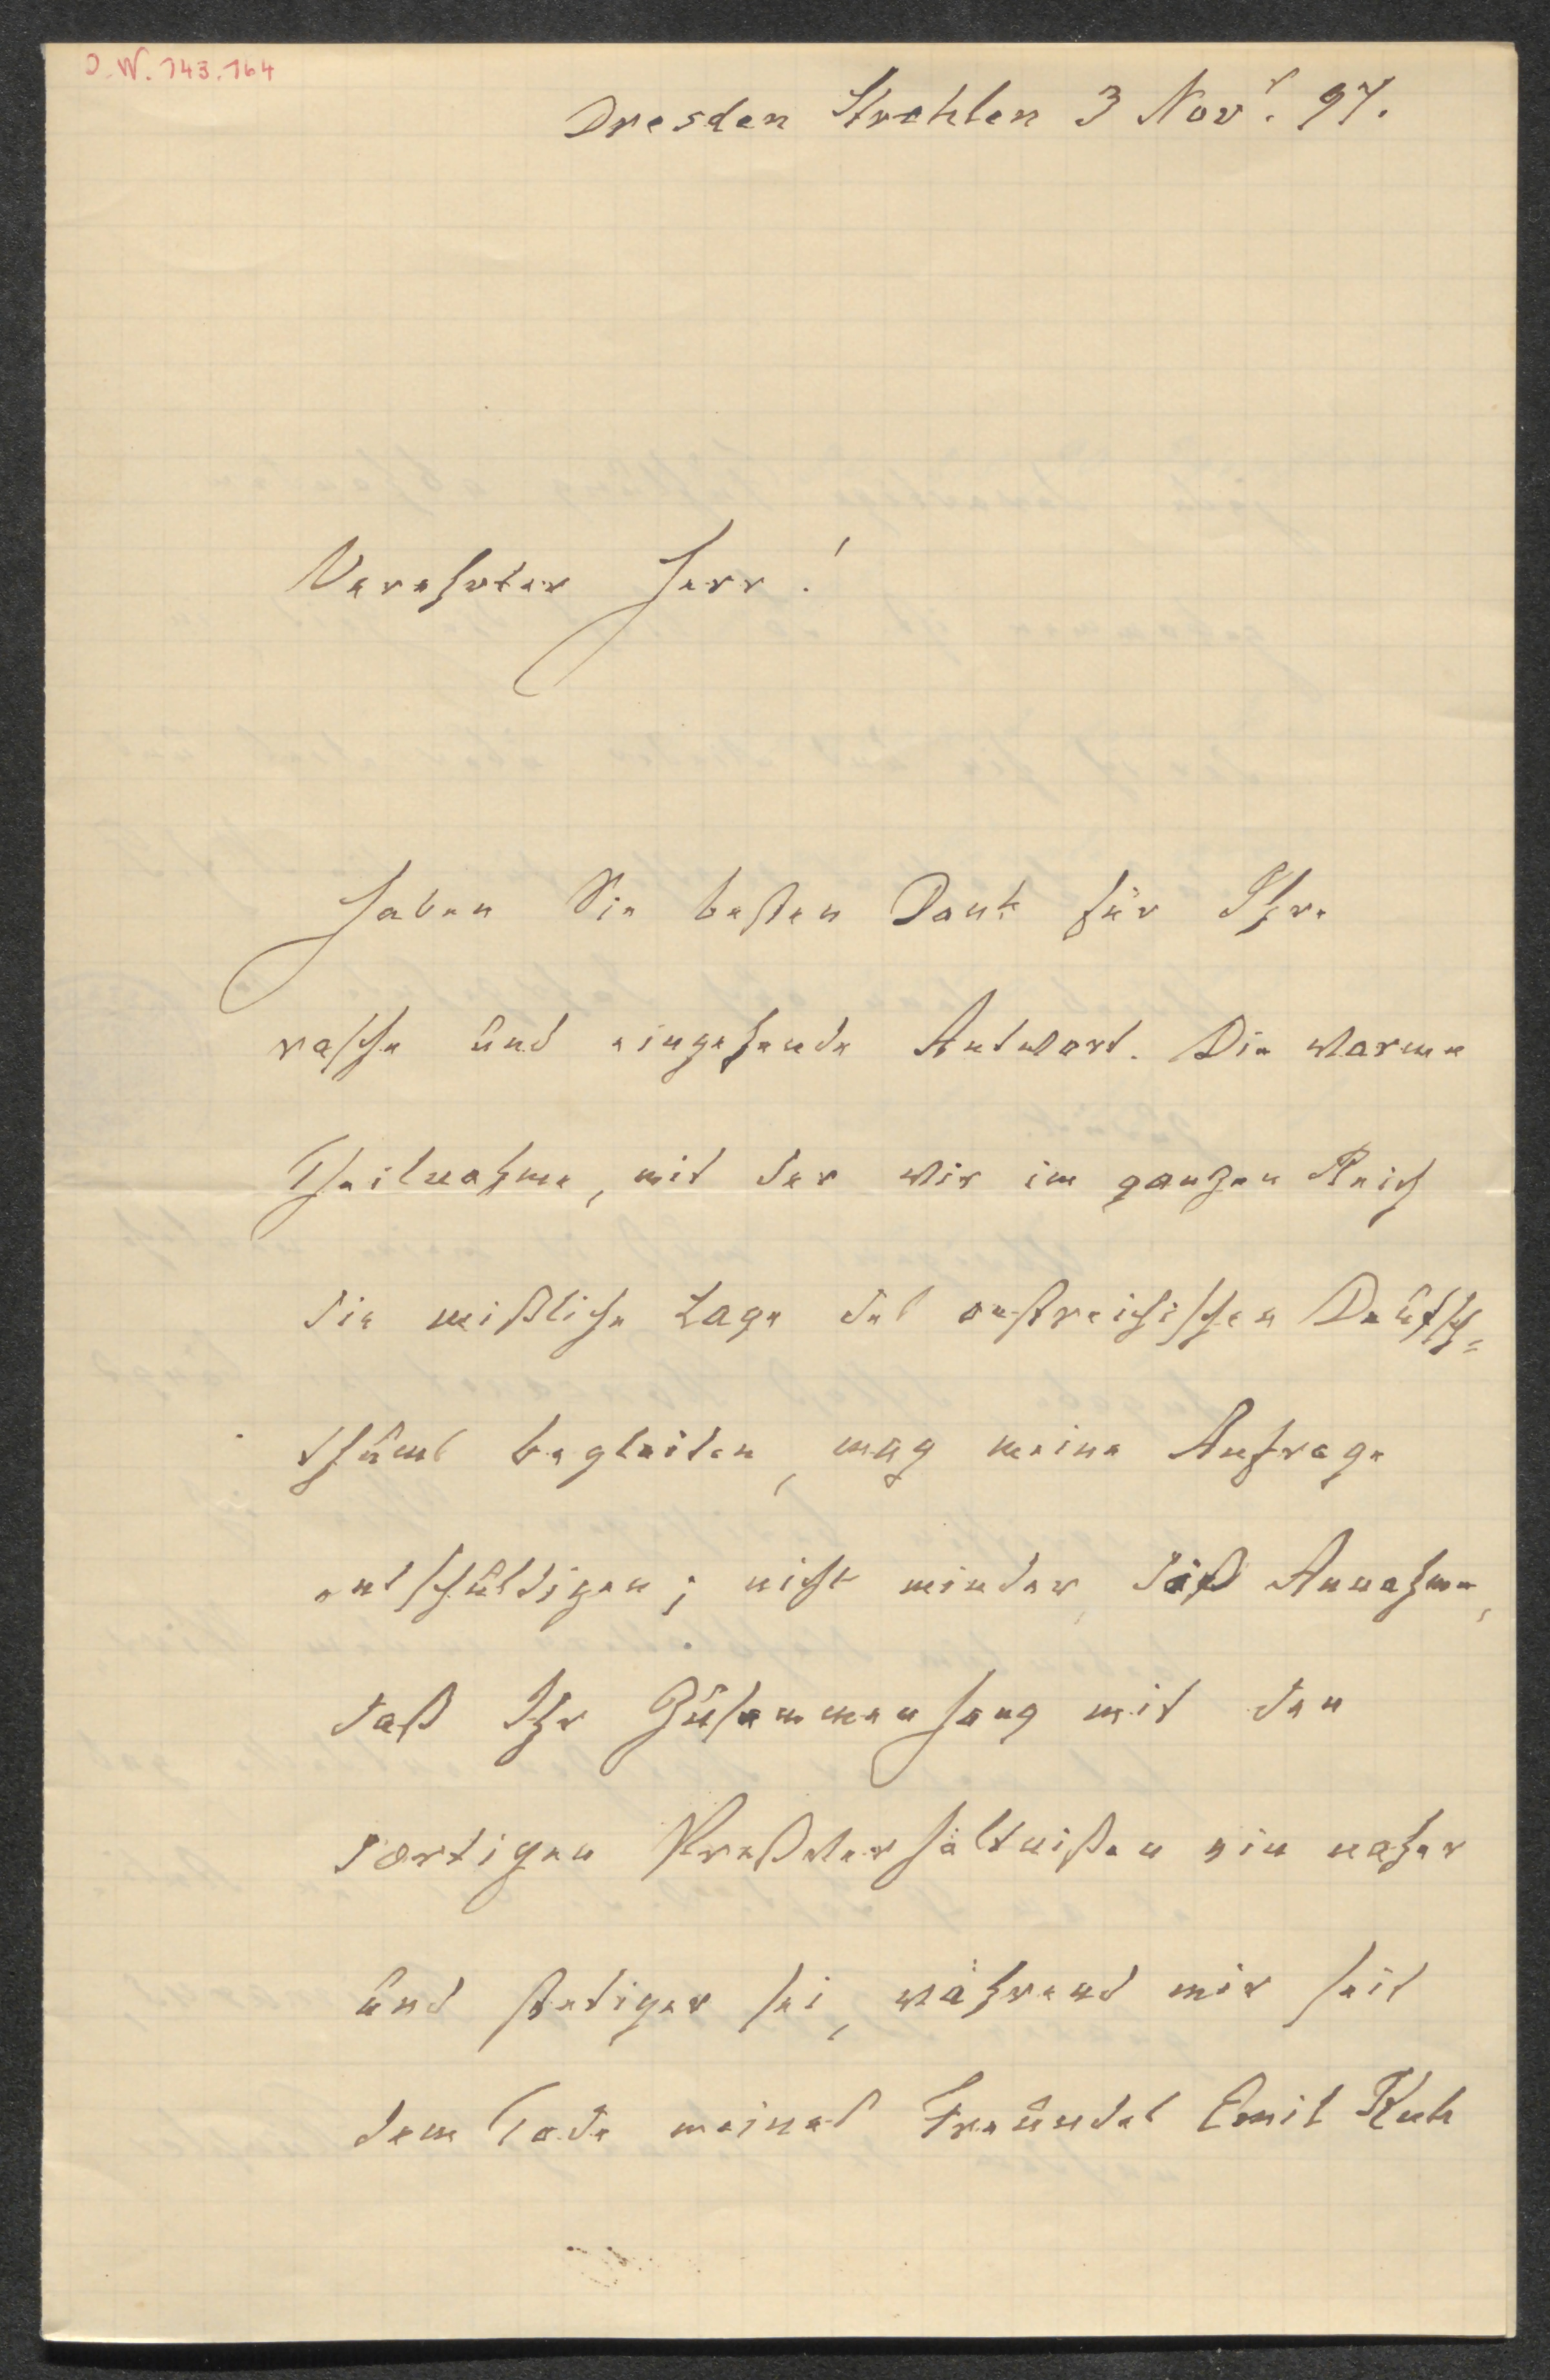 J.W. 143.164
Dresden Strehlen 3 Novr. 97.
Verehrter Herr!
Haben Sie besten Dank für Ihre
rasche und eingehende Antwort. Die warme
Theilnahme, mit der wir im ganzen Reich
die mißliche Lage des oestreichischen Deutsch=
thums begleiten, mag meine Anfrage
entschuldigen; nicht minder, die Annahme,
daß Ihr Zusammenhang mit den
dortigen Preßverhältnißen ein naher
und stetiger sei, während mir seit
dem Tode meines Freundes Emil Kuh